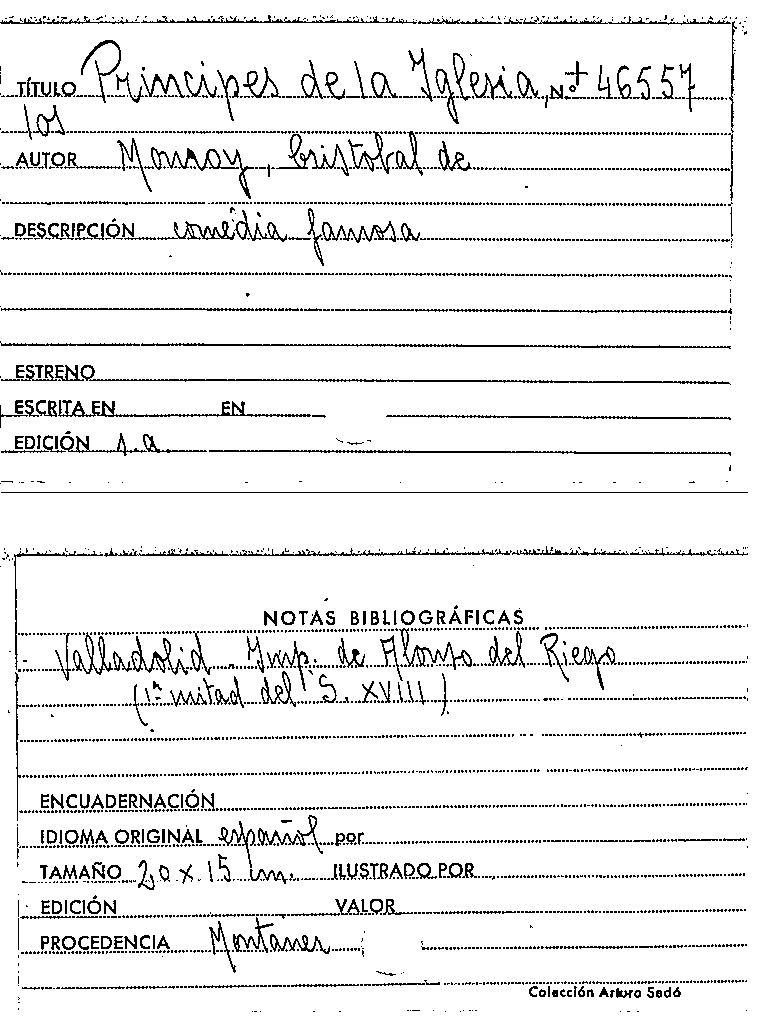 TÍTULO Príncipes de la Iglesia, N.º + 46557
los
AUTOR Monroy, Cristobal de
DESCRIPCIÓN comedia famosa
ESTRENO
ESCRITA EN EN
EDICIÓN s.a.
NOTAS BIBLIOGRÁFICAS
Valladolid. Imp. de Alonso del Riego
(1ª mitad del S. XVIII)
ENCUADERNACIÓN
IDIOMA ORIGINAL español por
TAMAÑO 20 x 15 cm. ILUSTRADO POR
EDICIÓN VALOR
PROCEDENCIA Montaner
Colección Arturo Sedó